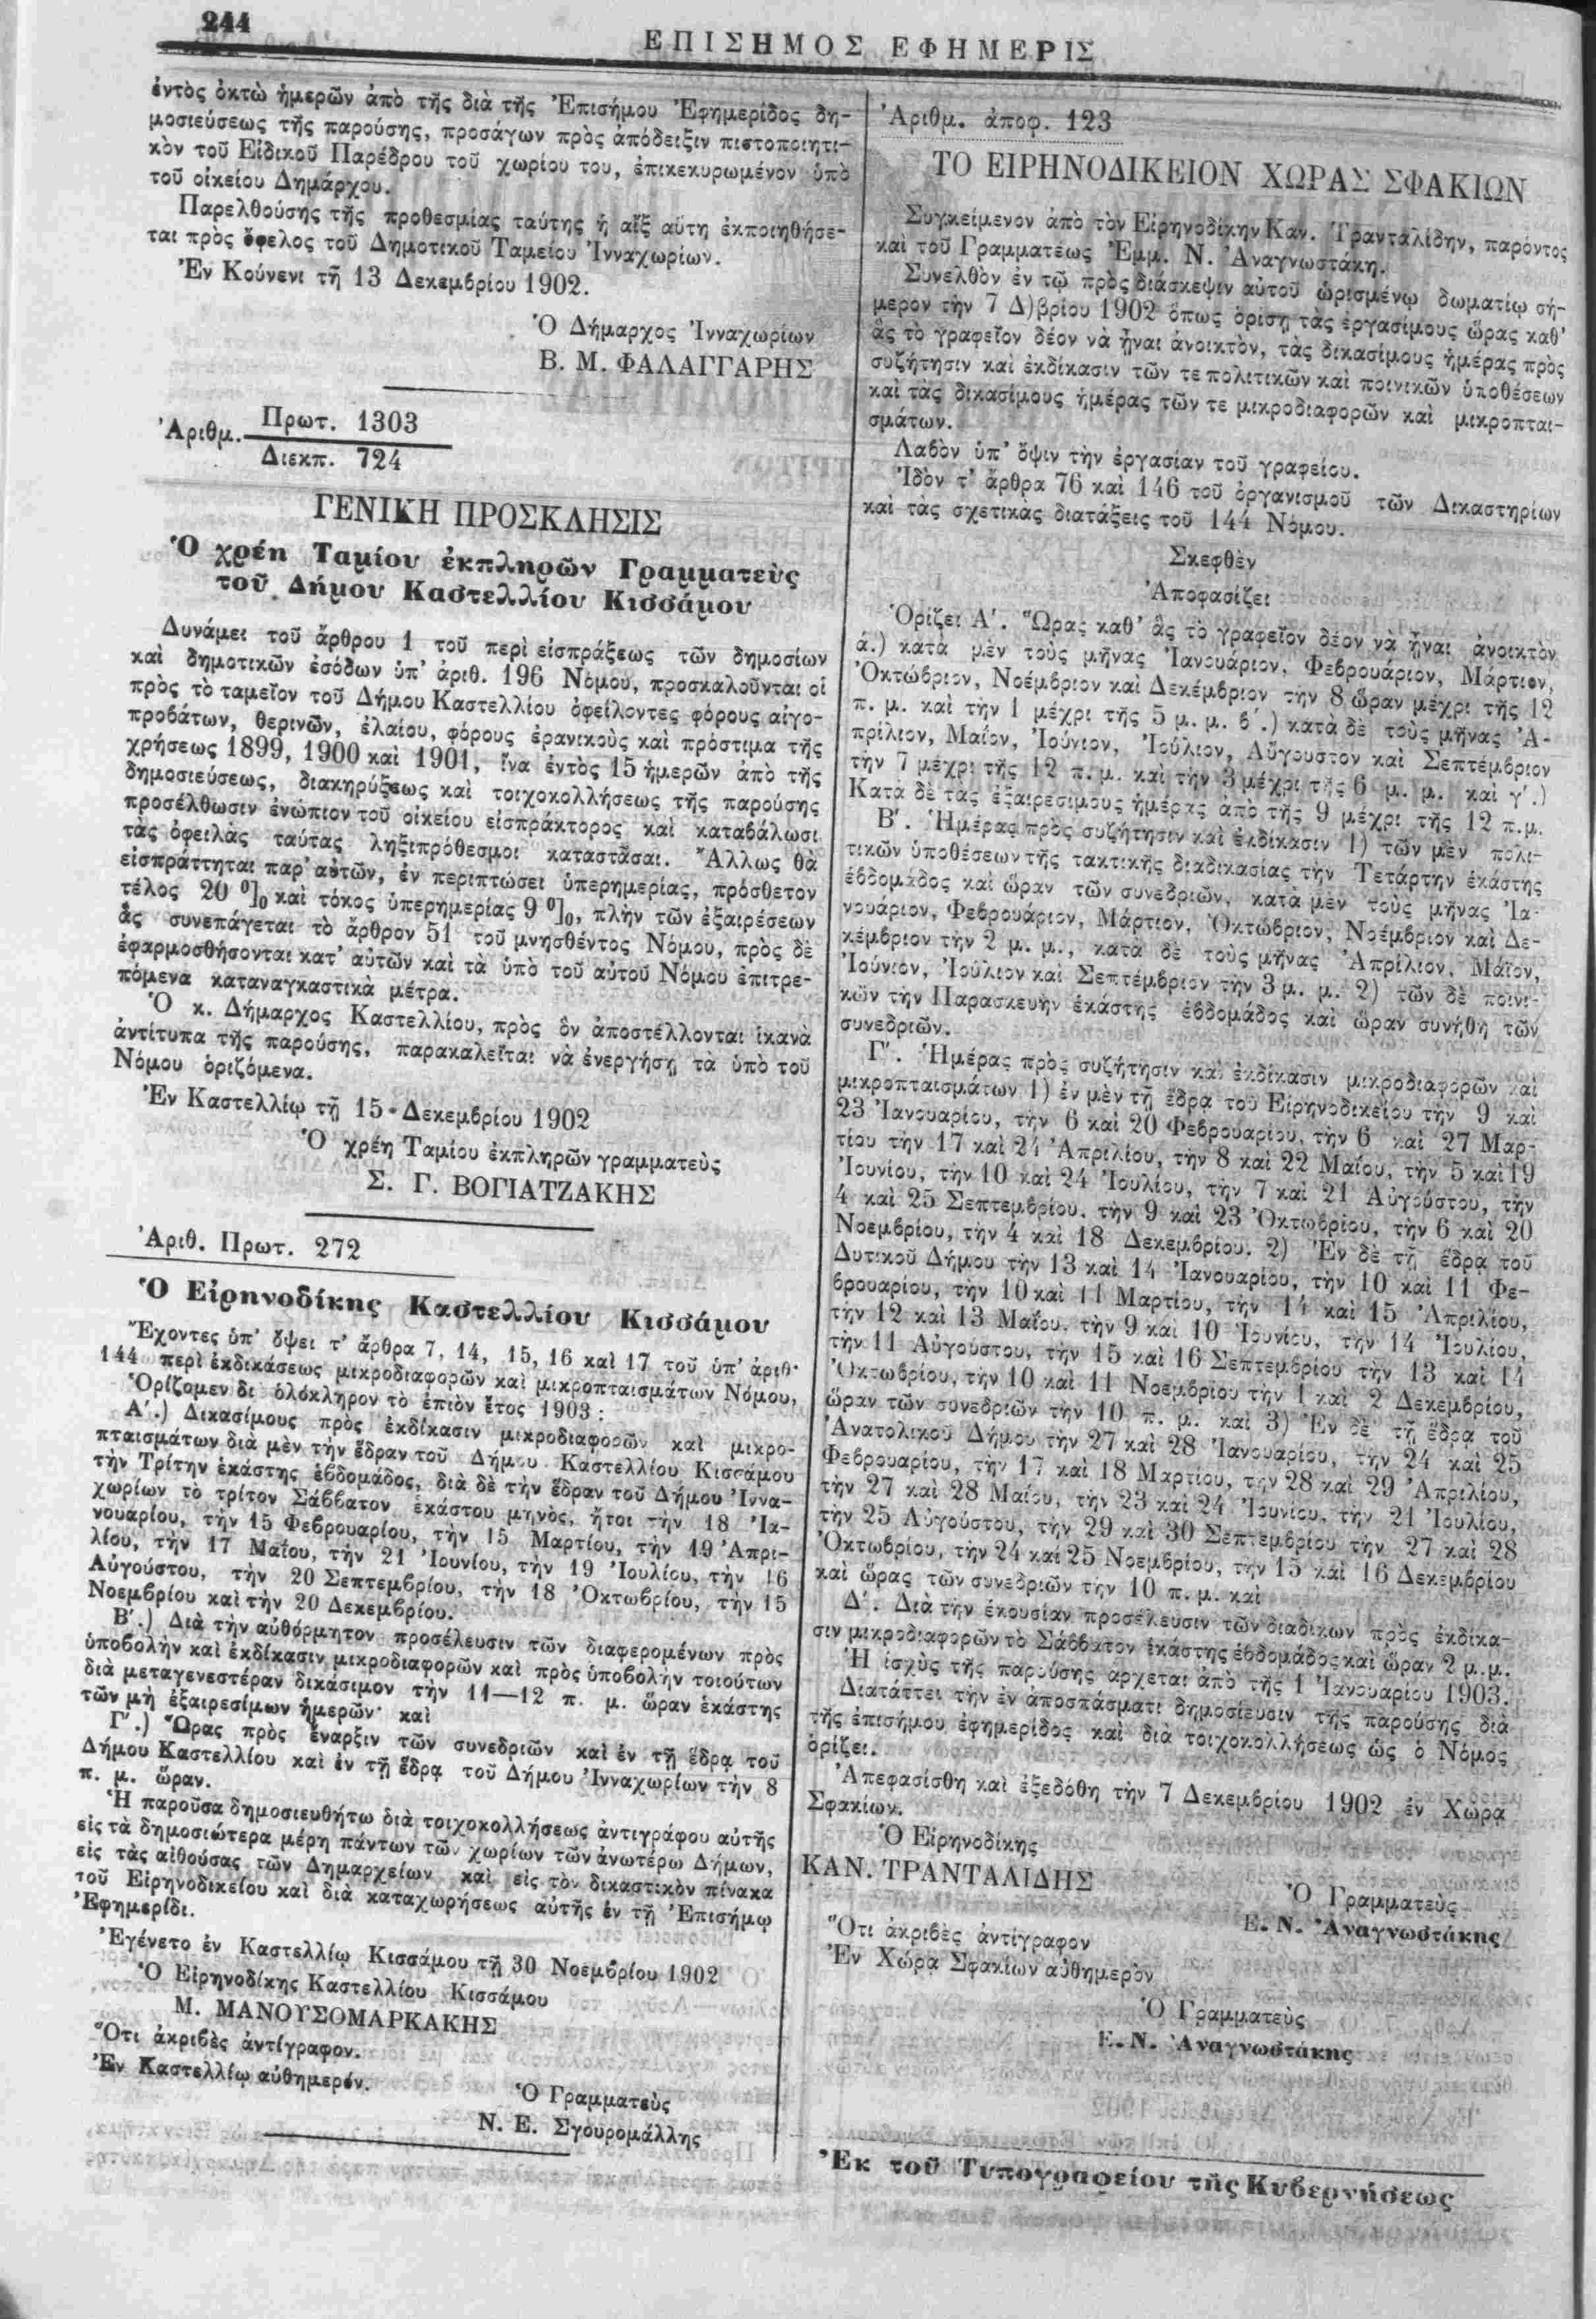 244
ΕΠΙΣΗΜΟΣ ΕΦΗΜΕΡΙΣ
ἐντὸς ὀκτὼ ἡμερῶν ἀπὸ τῆς διὰ τῆς Ἐπισήμου Ἐφημερίδος δη-
μοσιεύσεως τῆς παρούσης, προσάγων πρὸς ἀπόδειξιν πιστοποιητι-
κὸν τοῦ Εἰδικοῦ Παρέδρου τοῦ χωρίου του, ἐπικεκυρωμένον ὑπὸ
τοῦ οἰκείου Δημάρχου.
Παρελθούσης τῆς προθεσμίας ταύτης ἡ αἲξ αὕτη ἐκποιηθήσε-
ται πρὸς ὄφελος τοῦ Δημοτικοῦ Ταμείου Ἰνναχωρίων.
Ἐν Κούνενι τῇ 13 Δεκεμβρίου 1902.
Ὁ Δήμαρχος Ἰνναχωρίων
Β. Μ. ΦΑΛΑΓΓΑΡΗΣ
Ἀριθμ. Πρωτ. 1303
Διεκπ. 724
ΓΕΝΙΚΗ ΠΡΟΣΚΛΗΣΙΣ
Ὁ χρέη Ταμίου ἐκπληρῶν Γραμματεὺς
τοῦ Δήμου Καστελλίου Κισσάμου
Δυνάμει τοῦ ἄρθρου 1 τοῦ περὶ εἰσπράξεως τῶν δημοσίων
καὶ δημοτικῶν ἐσόδων ὑπ' ἀριθ. 196 Νόμου, προσκαλοῦνται οἱ
πρὸς τὸ ταμεῖον τοῦ Δήμου Καστελλίου ὀφείλοντες φόρους αἰγο-
προβάτων, θερινῶν, ἐλαίου, φόρους ἐρανικοὺς καὶ πρόστιμα τῆς
χρήσεως 1899, 1900 καὶ 1901, ἵνα ἐντὸς 15 ἡμερῶν ἀπὸ τῆς
δημοσιεύσεως, διακηρύξεως καὶ τοιχοκολλήσεως τῆς παρούσης
προσέλθωσιν ἐνώπιον τοῦ οἰκείου εἰσπράκτορος καὶ καταβάλωσι
τὰς ὀφειλὰς ταύτας ληξιπρόθεσμοι καταστᾶσαι. Ἄλλως θὰ
εἰσπράττηται παρ' αὐτῶν, ἐν περιπτώσει ὑπερημερίας, πρόσθετον
τέλος 20 ο]ο καὶ τόκος ὑπερημερίας 9 ο]ο, πλὴν τῶν ἐξαιρέσεων
ἃς συνεπάγεται τὸ ἄρθρον 51 τοῦ μνησθέντος Νόμου, πρὸς δὲ
ἐφαρμοσθήσονται κατ' αὐτῶν καὶ τὰ ὑπὸ τοῦ αὐτοῦ Νόμου ἐπιτρε-
πόμενα καταναγκαστικὰ μέτρα.
Ὁ κ. Δήμαρχος Καστελλίου, πρὸς ὃν ἀποστέλλονται ἱκανὰ
ἀντίτυπα τῆς παρούσης, παρακαλεῖται νὰ ἐνεργήσῃ τὰ ὑπὸ τοῦ
Νόμου ὁριζόμενα.
Ἐν Καστελλίῳ τῇ 15 Δεκεμβρίου 1902
Ὁ χρέη Ταμίου ἐκπληρῶν γραμματεὺς
Σ. Γ. ΒΟΓΙΑΤΖΑΚΗΣ
Ἀριθ. Πρωτ. 272
Ὁ Εἰρηνοδίκης Καστελλίου Κισσάμου
Ἔχοντες ὑπ' ὄψει τ' ἄρθρα 7, 14, 15, 16 καὶ 17 τοῦ ὑπ' ἀριθ.
144 περὶ ἐκδικάσεως μικροδιαφορῶν καὶ μικροπταισμάτων Νόμου,
Ὁρίζομεν δι ὁλόκληρον τὸ ἐπιὸν ἔτος 1903:
Α΄.) Δικασίμους πρὸς ἐκδίκασιν μικροδιαφορῶν καὶ μικρο-
πταισμάτων διὰ μὲν τὴν ἕδραν τοῦ Δήμου Καστελλίου Κισσάμου
τὴν Τρίτην ἑκάστης ἑβδομάδος, διὰ δὲ τὴν ἕδραν τοῦ Δήμου Ἰννα-
χωρίων τὸ τρίτον Σάββατον ἑκάστου μηνὸς, ἤτοι τὴν 18 Ἰα-
νουαρίου, τὴν 15 Φεβρουαρίου, τὴν 15 Μαρτίου, τὴν 19 Ἀπρι-
λίου, τὴν 17 Μαΐου, τὴν 21 Ἰουνίου, τὴν 19 Ἰουλίου, τὴν 16
Αὐγούστου, τὴν 20 Σεπτεμβρίου, τὴν 18 Ὀκτωβρίου, τὴν 15
Νοεμβρίου καὶ τὴν 20 Δεκεμβρίου.
Β΄.) Διὰ τὴν αὐθόρμητον προσέλευσιν τῶν διαφερομένων πρὸς
ὑποβολὴν καὶ ἐκδίκασιν μικροδιαφορῶν καὶ πρὸς ὑποβολὴν τοιούτων
διὰ μεταγενεστέραν δικάσιμον τὴν 11—12 π. μ. ὥραν ἑκάστης
τῶν μὴ ἐξαιρεσίμων ἡμερῶν· καὶ
Γ΄.) Ὥρας πρὸς ἔναρξιν τῶν συνεδριῶν καὶ ἐν τῇ ἕδρᾳ τοῦ
Δήμου Καστελλίου καὶ ἐν τῇ ἕδρᾳ τοῦ Δήμου Ἰνναχωρίων τὴν 8
π. μ. ὥραν.
Ἡ παροῦσα δημοσιευθήτω διὰ τοιχοκολλήσεως ἀντιγράφου αὐτῆς
εἰς τὰ δημοσιώτερα μέρη πάντων τῶν χωρίων τῶν ἀνωτέρω Δήμων,
εἰς τὰς αἰθούσας τῶν Δημαρχείων καὶ εἰς τὸν δικαστικὸν πίνακα
τοῦ Εἰρηνοδικείου καὶ διὰ καταχωρήσεως αὐτῆς ἐν τῇ Ἐπισήμῳ
Ἐφημερίδι.
Ἐγένετο ἐν Καστελλίῳ Κισσάμου τῇ 30 Νοεμβρίου 1902
Ὁ Εἰρηνοδίκης Καστελλίου Κισσάμου
Μ. ΜΑΝΟΥΣΟΜΑΡΚΑΚΗΣ
Ὅτι ἀκριβὲς ἀντίγραφον.
Ἐν Καστελλίῳ αὐθημερόν.
Ὁ Γραμματεὺς
Ν. Ε. Σγουρομάλλης
Ἀριθμ. ἀποφ. 123
ΤΟ ΕΙΡΗΝΟΔΙΚΕΙΟΝ ΧΩΡΑΣ ΣΦΑΚΙΩΝ
Συγκείμενον ἀπὸ τὸν Εἰρηνοδίκην Καν. Τρανταλίδην, παρόντος
καὶ τοῦ Γραμματέως Ἐμμ. Ν. Ἀναγνωστάκη.
Συνελθὸν ἐν τῷ πρὸς διάσκεψιν αὐτοῦ ὡρισμένῳ δωματίῳ σή-
μερον τὴν 7 Δ)βρίου 1902 ὅπως ὁρίσῃ τὰς ἐργασίμους ὥρας καθ'
ἃς τὸ γραφεῖον δέον νὰ ᾖναι ἀνοικτὸν, τὰς δικασίμους ἡμέρας πρὸς
συζήτησιν καὶ ἐκδίκασιν τῶν τε πολιτικῶν καὶ ποινικῶν ὑποθέσεων
καὶ τὰς δικασίμους ἡμέρας τῶν τε μικροδιαφορῶν καὶ μικροπται-
σμάτων.
Λαβὸν ὑπ' ὄψιν τὴν ἐργασίαν τοῦ γραφείου.
Ἰδὸν τ' ἄρθρα 76 καὶ 146 τοῦ ὀργανισμοῦ τῶν Δικαστηρίων
καὶ τὰς σχετικὰς διατάξεις τοῦ 144 Νόμου.
Σκεφθὲν
Ἀποφασίζει
Ὁρίζει Α΄. Ὥρας καθ' ἃς τὸ γραφεῖον δέον νὰ ᾖναι ἀνοικτὸν
ά.) κατὰ μὲν τοὺς μῆνας Ἰανουάριον, Φεβρουάριον, Μάρτιον,
Ὀκτώβριον, Νοέμβριον καὶ Δεκέμβριον τὴν 8 ὥραν μέχρι τῆς 12
π. μ. καὶ τὴν 1 μέχρι τῆς 5 μ. μ. β΄.) κατὰ δὲ τοὺς μῆνας Ἀ-
πρίλιον, Μαΐον, Ἰούνιον, Ἰούλιον, Αὔγουστον καὶ Σεπτέμβριον
τὴν 7 μέχρι τῆς 12 π. μ. καὶ τὴν 3 μέχρι τῆς 6 μ. μ. καὶ γ΄.)
Κατὰ δὲ τὰς ἐξαιρεσίμους ἡμέρας ἀπὸ τῆς 9 μέχρι τῆς 12 π.μ.
Β΄. Ἡμέρας πρὸς συζήτησιν καὶ ἐκδίκασιν 1) τῶν μὲν πολι-
τικῶν ὑποθέσεων τῆς τακτικῆς διαδικασίας τὴν Τετάρτην ἑκάστης
ἑβδομάδος καὶ ὥραν τῶν συνεδριῶν, κατὰ μὲν τοὺς μῆνας Ἰα-
νουάριον, Φεβρουάριον, Μάρτιον, Ὀκτώβριον, Νοέμβριον καὶ Δε-
κέμβριον τὴν 2 μ. μ., κατὰ δὲ τοὺς μῆνας Ἀπρίλιον, Μάϊον,
Ἰούνιον, Ἰούλιον καὶ Σεπτέμβριον τὴν 3 μ. μ. 2) τῶν δὲ ποινι-
κῶν τὴν Παρασκευὴν ἑκάστης ἑβδομάδος καὶ ὥραν συνήθη τῶν
συνεδριῶν.
Γ΄. Ἡμέρας πρὸς συζήτησιν καὶ ἐκδίκασιν μικροδιαφορῶν καὶ
μικροπταισμάτων 1) ἐν μὲν τῇ ἕδρᾳ τοῦ Εἰρηνοδικείου τὴν 9 καὶ
23 Ἰανουαρίου, τὴν 6 καὶ 20 Φεβρουαρίου, τὴν 6 καὶ 27 Μαρ-
τίου τὴν 17 καὶ 24 Ἀπριλίου, τὴν 8 καὶ 22 Μαΐου, τὴν 5 καὶ 19
Ἰουνίου, τὴν 10 καὶ 24 Ἰουλίου, τὴν 7 καὶ 21 Αὐγούστου, τὴν
4 καὶ 25 Σεπτεμβρίου, τὴν 9 καὶ 23 Ὀκτωβρίου, τὴν 6 καὶ 20
Νοεμβρίου, τὴν 4 καὶ 18 Δεκεμβρίου. 2) Ἐν δὲ τῇ ἕδρᾳ τοῦ
Δυτικοῦ Δήμου τὴν 13 καὶ 14 Ἰανουαρίου, τὴν 10 καὶ 11 Φε-
βρουαρίου, τὴν 10 καὶ 11 Μαρτίου, τὴν 14 καὶ 15 Ἀπριλίου,
τὴν 12 καὶ 13 Μαΐου, τὴν 9 καὶ 10 Ἰουνίου, τὴν 14 Ἰουλίου,
τὴν 11 Αὐγούστου, τὴν 15 καὶ 16 Σεπτεμβρίου τὴν 13 καὶ 14
Ὀκτωβρίου, τὴν 10 καὶ 11 Νοεμβρίου τὴν 1 καὶ 2 Δεκεμβρίου,
ὥραν τῶν συνεδριῶν τὴν 10 π. μ. καὶ 3) Ἐν δὲ τῇ ἕδρᾳ τοῦ
Ἀνατολικοῦ Δήμου τὴν 27 καὶ 28 Ἰανουαρίου, τὴν 24 καὶ 25
Φεβρουαρίου, τὴν 17 καὶ 18 Μαρτίου, τὴν 28 καὶ 29 Ἀπριλίου,
τὴν 27 καὶ 28 Μαΐου, τὴν 23 καὶ 24 Ἰουνίου, τὴν 21 Ἰουλίου,
τὴν 25 Αὐγούστου, τὴν 29 καὶ 30 Σεπτεμβρίου τὴν 27 καὶ 28
Ὀκτωβρίου, τὴν 24 καὶ 25 Νοεμβρίου, τὴν 15 καὶ 16 Δεκεμβρίου
καὶ ὥρας τῶν συνεδριῶν τὴν 10 π. μ. καὶ
Δ΄. Διὰ τὴν ἑκουσίαν προσέλευσιν τῶν διαδίκων πρὸς ἐκδίκα-
σιν μικροδιαφορῶν τὸ Σάββατον ἑκάστης ἑβδομάδος καὶ ὥραν 2 μ.μ.
Ἡ ἰσχὺς τῆς παρούσης ἄρχεται ἀπὸ τῆς 1 Ἰανουαρίου 1903.
Διατάττει τὴν ἐν ἀποσπάσματι δημοσίευσιν τῆς παρούσης διὰ
τῆς ἐπισήμου ἐφημερίδος καὶ διὰ τοιχοκολλήσεως ὡς ὁ Νόμος
ὁρίζει.
Ἀπεφασίσθη καὶ ἐξεδόθη τὴν 7 Δεκεμβρίου 1902 ἐν Χώρᾳ
Σφακίων.
Ὁ Εἰρηνοδίκης
ΚΑΝ. ΤΡΑΝΤΑΛΙΔΗΣ
Ὁ Γραμματεὺς
Ε. Ν. Ἀναγνωστάκης
Ὅτι ἀκριβὲς ἀντίγραφον
Ἐν Χώρᾳ Σφακίων αὐθημερὸν
Ὁ Γραμματεὺς
Ε. Ν. Ἀναγνωστάκης
Ἐκ τοῦ Τυπογραφείου τῆς Κυβερνήσεως